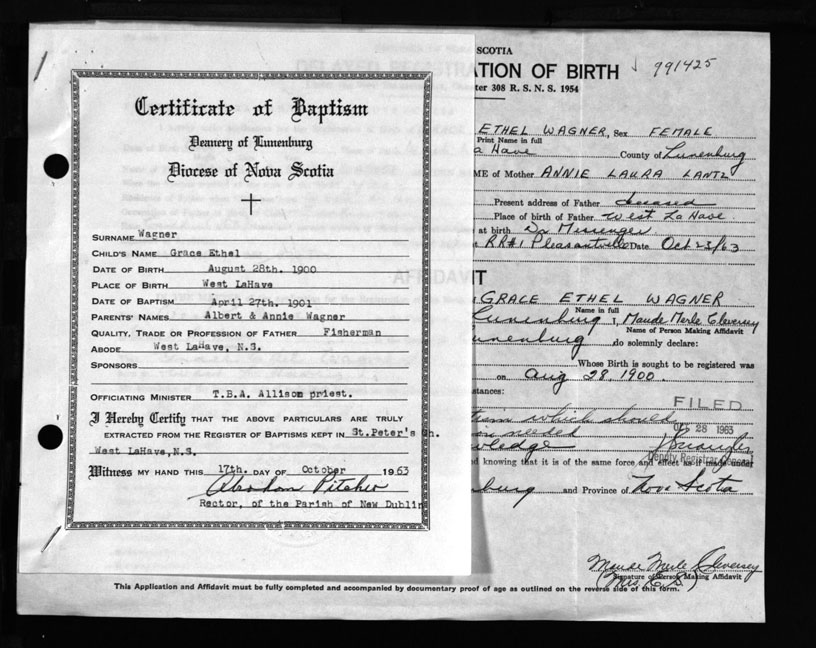 Certificate of Baptism
Deanery of Lunenburg
Diocese of Nova Scotia
SURNAME Wagner
CHILD'S NAME Grace Ethel
DATE OF BIRTH August 28th. 1900
PLACE OF BIRTH West LaHave
DATE OF BAPTISM April 27th. 1901
PARENTS' NAMES Albert & Annie Wagner
QUALITY, TRADE OR PROFESSION OF FATHER Fisherman
ABODE West LaHave, N.S.
SPONSORS
OFFICIATING MINISTER T.B.A. Allison priest.
I Hereby Certify THAT THE ABOVE PARTICULARS ARE TRULY
EXTRACTED FROM THE REGISTER OF BAPTISMS KEPT IN St.Peter's Ch.
West LaHave,N.S.
Witness MY HAND THIS 17th. DAY OF October 1963
Abraham Pitcher
Rector, of the Parish of New Dublin
SCOTIA
TION OF BIRTH 991425
ter 308 R. S. N. S. 1954
ETHEL WAGNER, Sex FEMALE
Print Name in full
a Have County of Lunenburg
ME of Mother ANNIE LAURA LANTZ
Present address of Father deceased
Place of birth of Father West La Have.
at birth Dr Messenger
RR#1 Pleasantville Date Oct 23/63
IT
GRACE ETHEL WAGNER
Name in full
Lunenburg I, Maude Merle Cleversey
Name of Person Making Affidavit
unenburg do solemnly declare:
Whose Birth is sought to be registered was
on Aug 28, 1900.
stances:
FILED
which should
OCT 28 1963
needed
wledge
Deputy Registrar General
d knowing that it is of the same force and effect as if made under
nburg and Province of Nova Scotia
Maude Merle Cleversey
Signature of Person Making Affidavit
This Application and Affidavit must be fully completed and accompanied by documentary proof of age as outlined on the reverse side of this form.